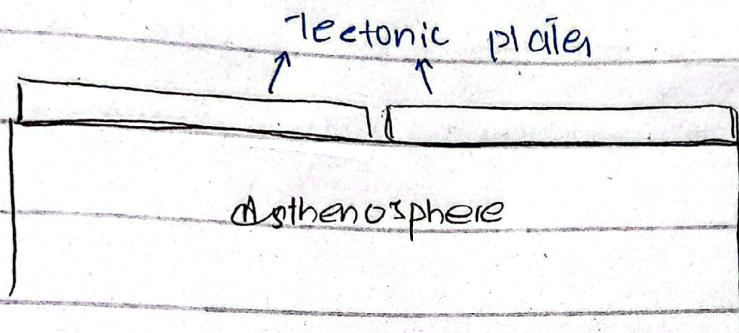 Tectonic plates
Asthenosphere